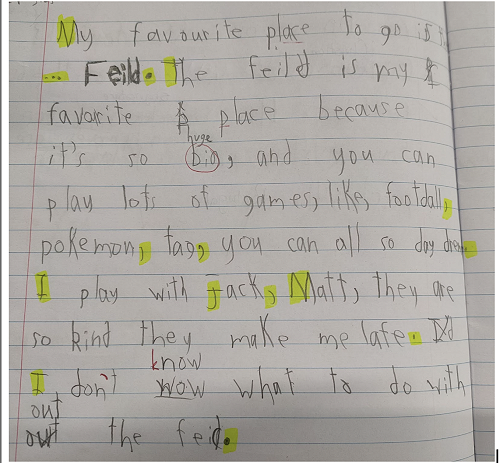 My favourite place to go is
... Feild. The feild is my
favorite place because
huge
it's so big, and you can
play lots of games, like, footdall,
pokemon, tag, you can all so day dream.
I play with Jack, Matt, they are
so kind they make me lafe.
know
I don't now what to do with
out
out the feid.